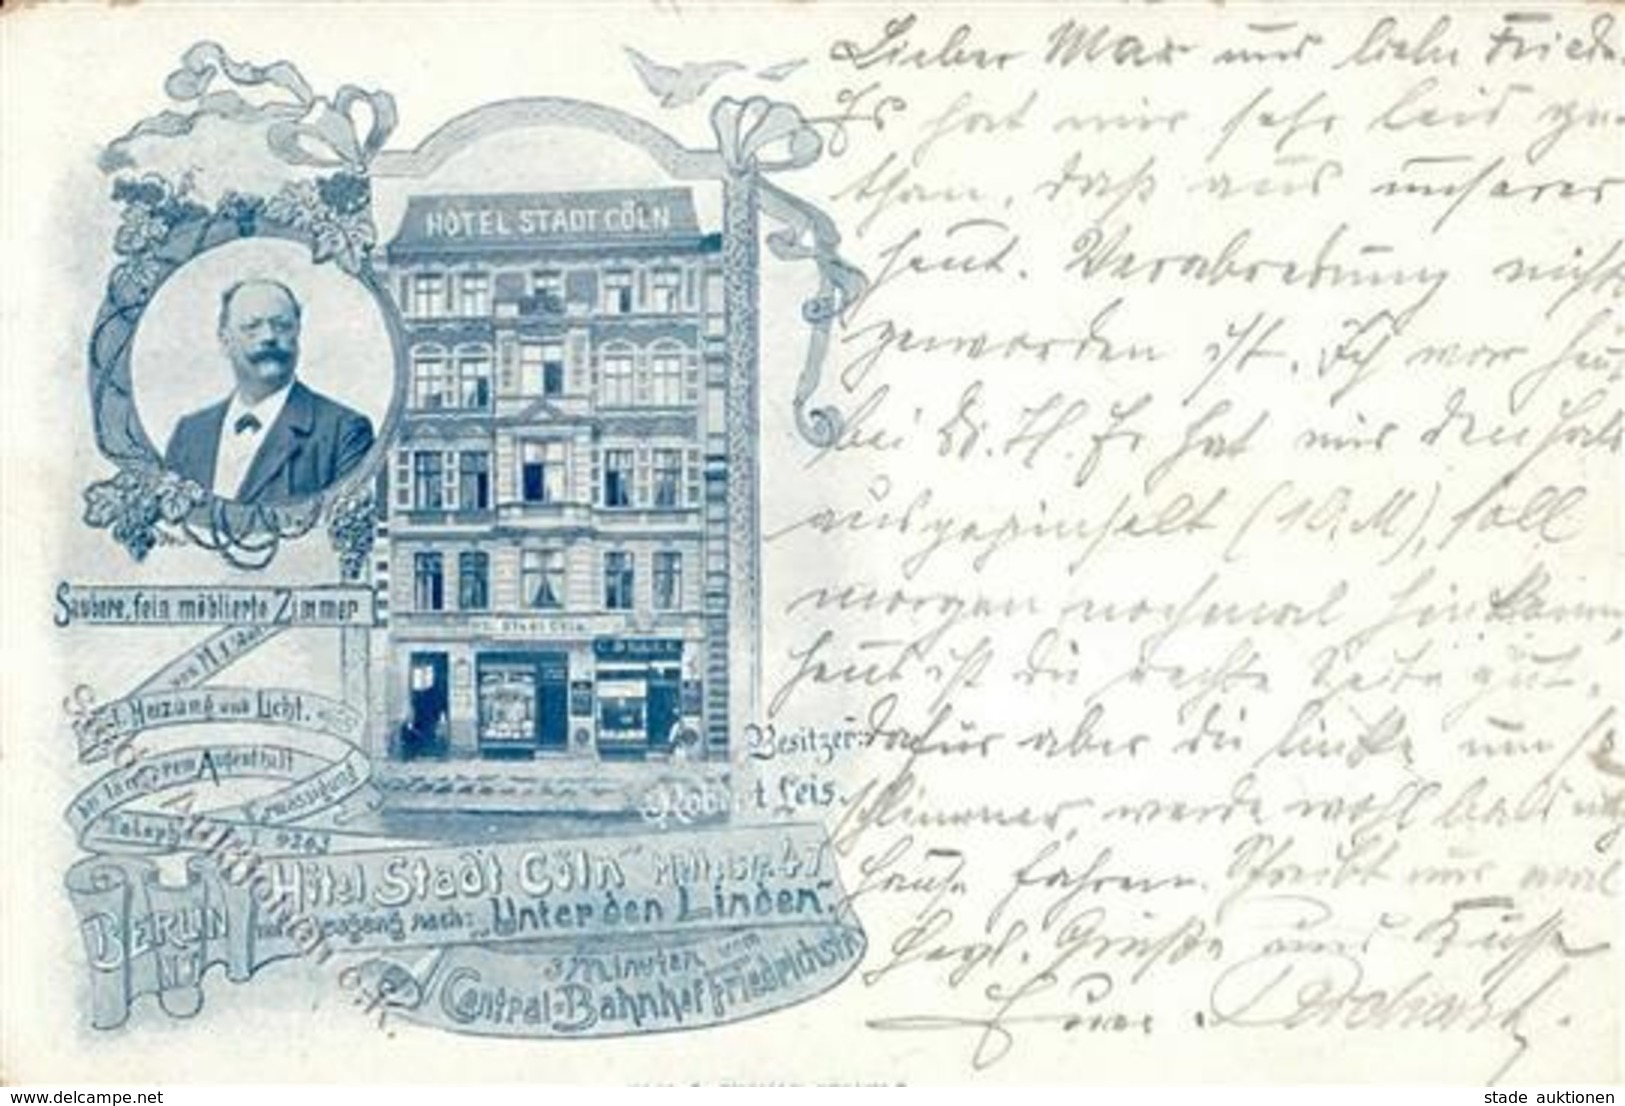 HÔTEL STADT CÖLN
Saubere, fein möblierte Zimmer
von M
Heizung und Licht.
Bei längerem Aufenthalt
Ermässigung
Teleph. 9263
Besitzer:
Robert Leis.
"Hôtel Stadt Cöln" Mittelstr. 47
BERLIN
mit Ausgang nach: "Unter den Linden".
3 Minuten vom
Central-Bahnhof Friedrichstr.
Lieber Max und liebe Friede.
Es hat mir sehr leid ge-
than, daß aus unserer
heut. Verabredung nicht
geworden ist. Ich war heut
bei Dr. H. Er hat mir den Hals
ausgepinselt (10 M), soll
morgen nochmal hinkommen,
heut ist die rechte Seite gut,
dafür aber die linke um so
schlimmer, werde wohl bald nach
Hause fahren. Schreibt mir mal
Hezl. Grüße und Küsse
Eure
Stade Auktionen e.K.
www.ak-ansichtskarten.net
stade auktionen